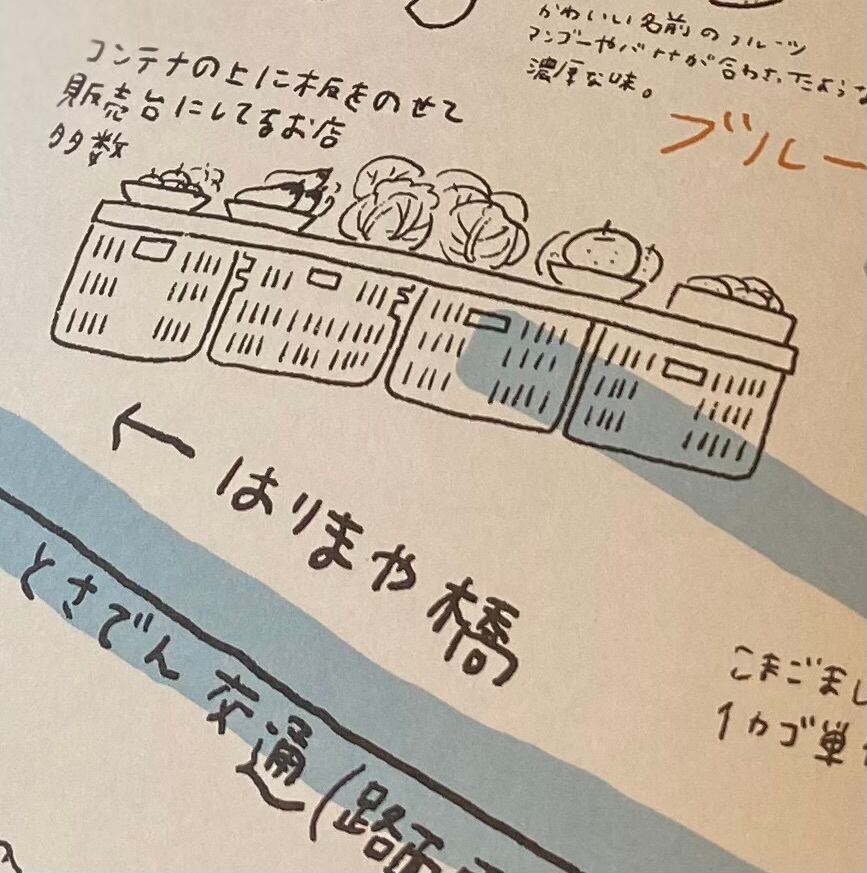 かわいい名前のフルーツ
マンゴーやバナナが合わさったような
濃厚な味。
ブルー
コンテナの上に板をのせて
販売台にしてるお店
多数
← はりまや橋
とさでん交通(路面
こまごまし
1カゴ単